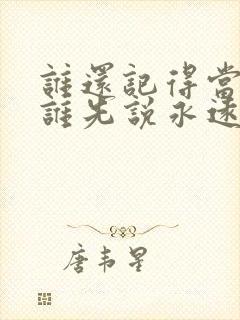 誰還記得當
誰先說永遠
唐韦星